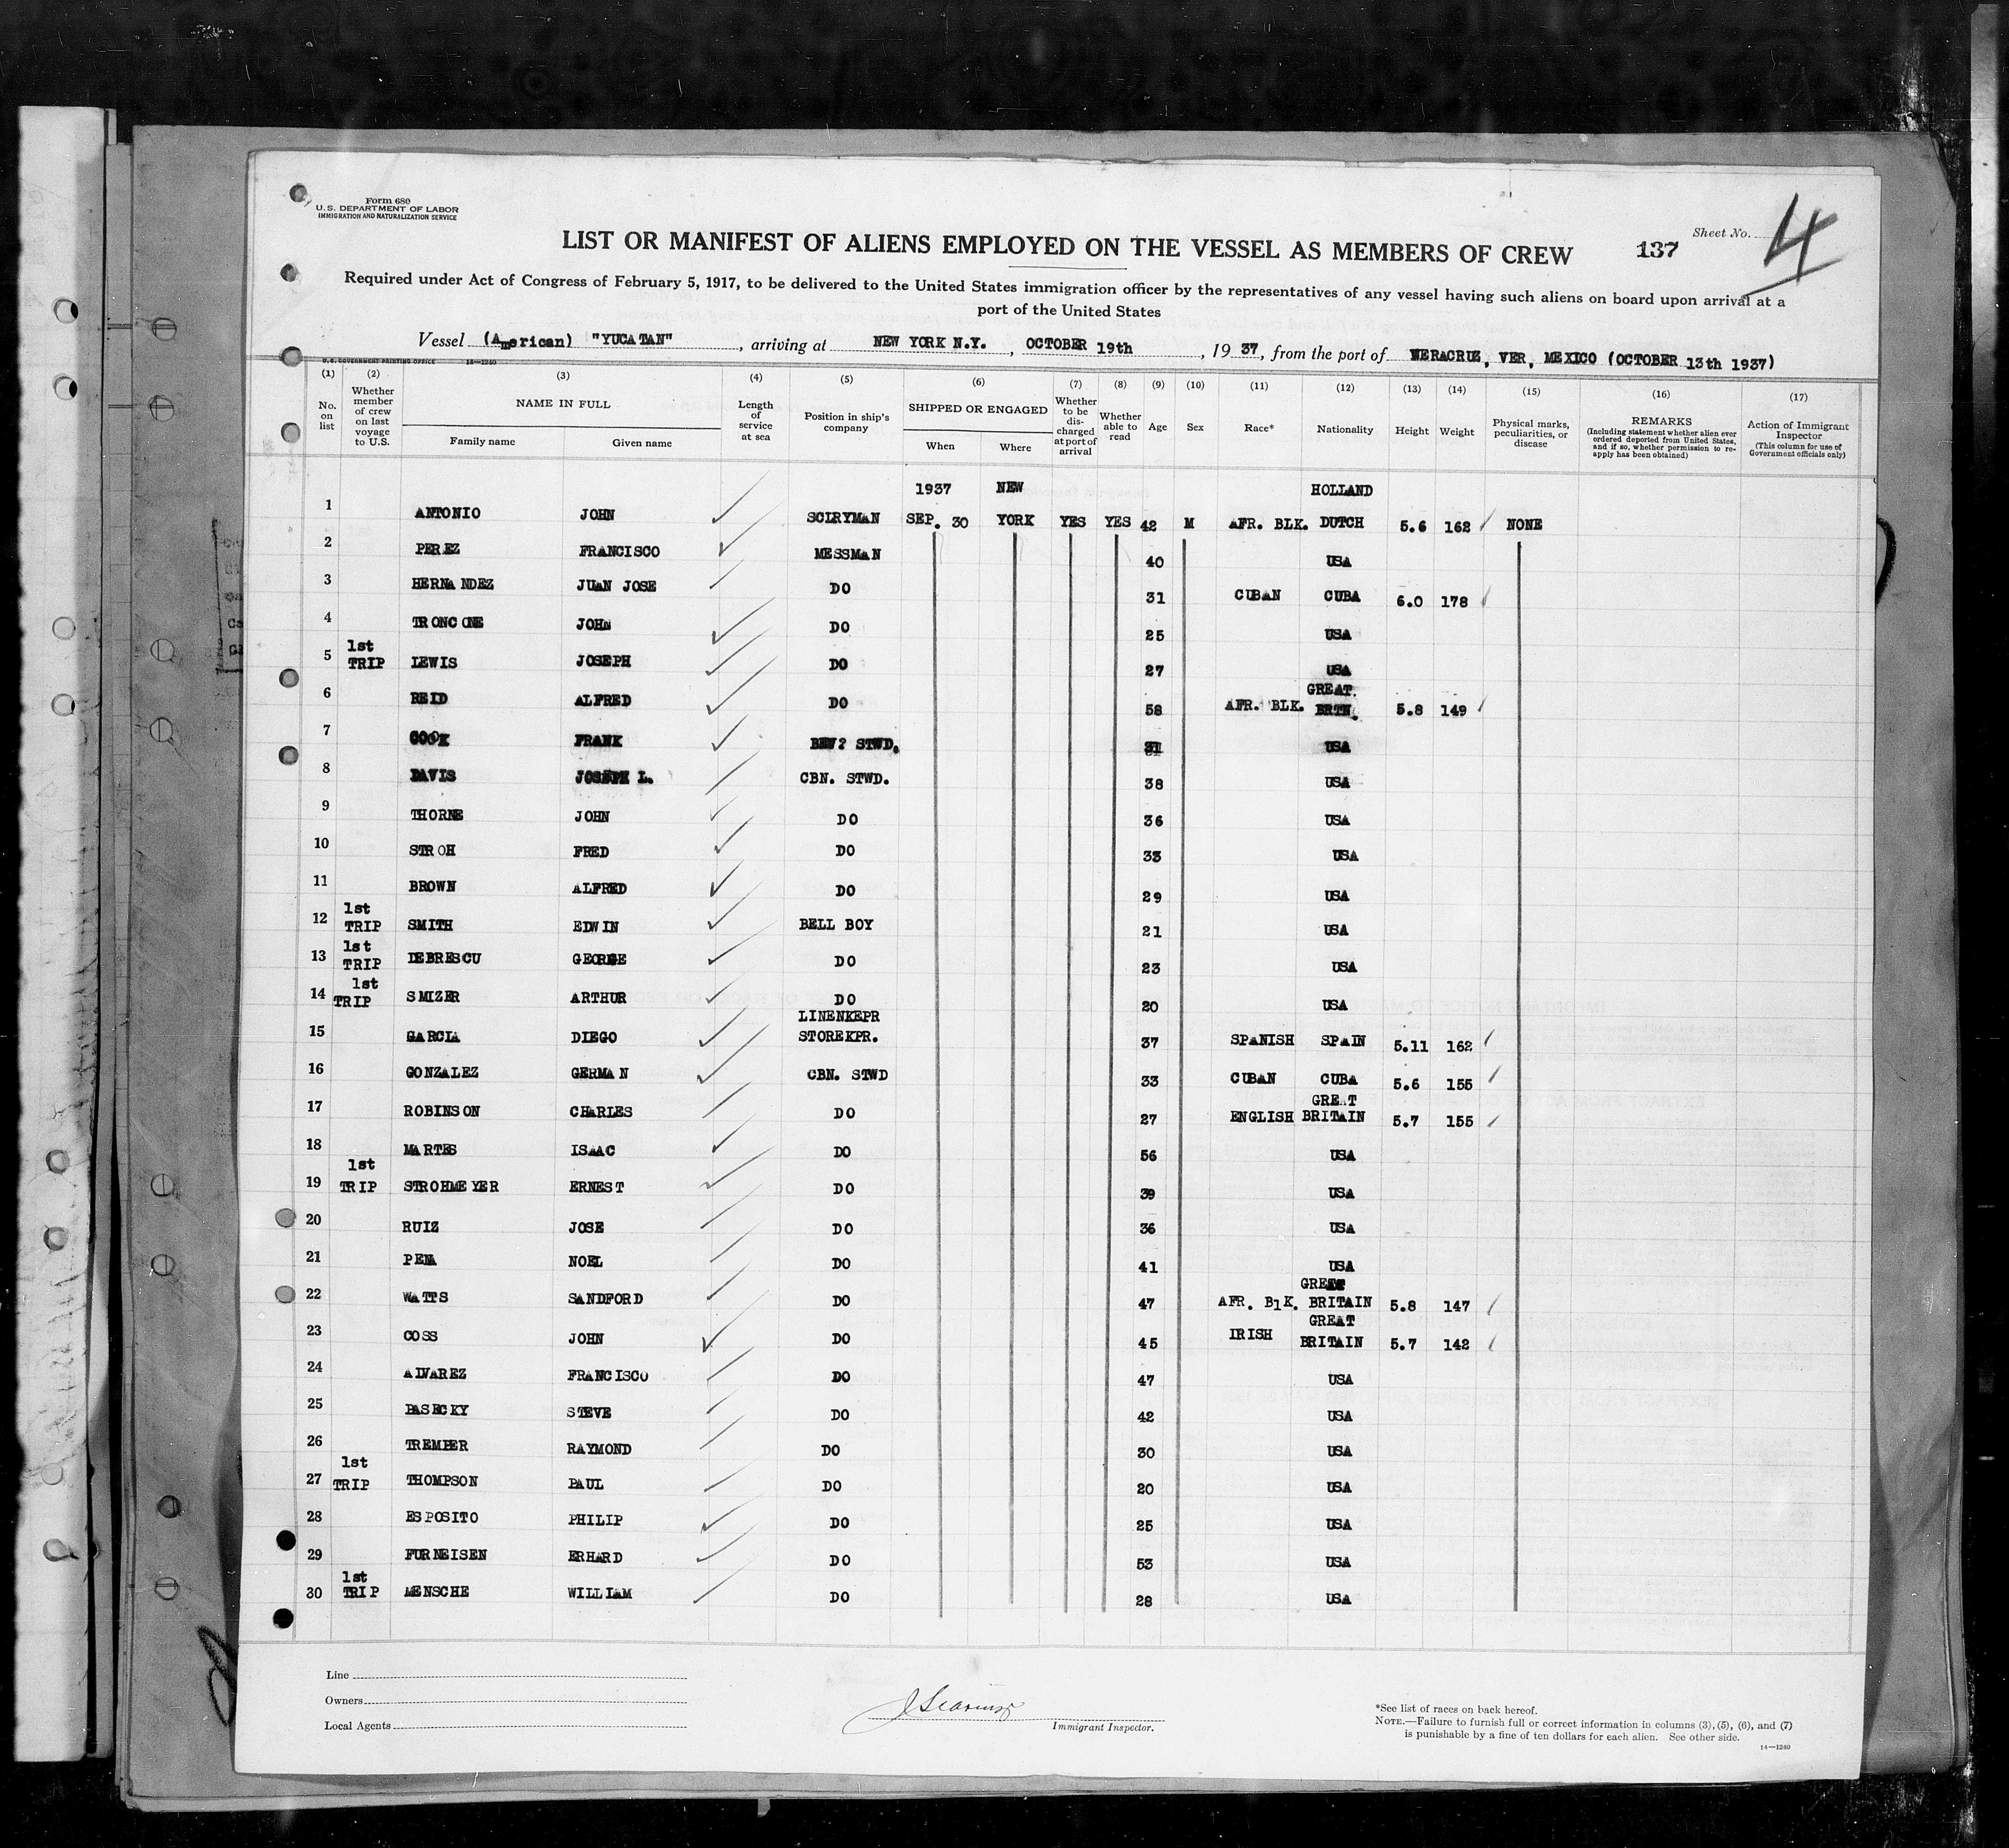 Form 680
U. S. DEPARTMENT OF LABOR
IMMIGRATION AND NATURALIZATION SERVICE
Sheet No. 4
LIST OR MANIFEST OF ALIENS EMPLOYED ON THE VESSEL AS MEMBERS OF CREW 137
Required under Act of Congress of February 5, 1917, to be delivered to the United States immigration officer by the representatives of any vessel having such aliens on board upon arrival at a
port of the United States
Vessel (American) "YUCATAN", arriving at NEW YORK N.Y., OCTOBER 19th, 1937, from the port of VERACRUZ, VER, MEXICO (OCTOBER 13th 1937)
U.S. GOVERNMENT PRINTING OFFICE 14—1240
(1) No. on list
(2) Whether member of crew on last voyage to U.S.
(3) NAME IN FULL Family name Given name
(4) Length of service at sea
(5) Position in ship's company
(6) SHIPPED OR ENGAGED When Where
(7) Whether to be discharged at port of arrival
(8) Whether able to read
(9) Age
(10) Sex
(11) Race*
(12) Nationality
(13) Height
(14) Weight
(15) Physical marks, peculiarities, or disease
(16) REMARKS (Including statement whether alien ever ordered deported from United States, and if so, whether permission to re-apply has been obtained)
(17) Action of Immigrant Inspector (This column for use of Government officials only)
1937 NEW HOLLAND
1 ANTONIO JOHN SCLRYMAN SEP. 30 YORK YES YES 42 M AFR. BLK. DUTCH 5.6 162 NONE
2 PEREZ FRANCISCO MESSMAN 40 USA
3 HERNANDEZ JUAN JOSE DO 31 CUBAN CUBA 6.0 178
4 TRONCONE JOHN DO 25 USA
5 1st TRIP LEWIS JOSEPH DO 27 USA
6 REID ALFRED DO 58 AFR. BLK. GREAT. BRTN. 5.8 149
7 COOK FRANK STWD. 31 USA
8 DAVIS JOSEPH L. CBN. STWD. 38 USA
9 THORNE JOHN DO 36 USA
10 STROH FRED DO 33 USA
11 BROWN ALFRED DO 29 USA
12 1st TRIP SMITH EDWIN BELL BOY 21 USA
13 1st TRIP DEBRESCU GEORGE DO 23 USA
14 1st TRIP SMIZER ARTHUR DO 20 USA
15 GARCIA DIEGO LINENKEPR STOREKPR. 37 SPANISH SPAIN 5.11 162
16 GONZALEZ GERMAN CBN. STWD 33 CUBAN CUBA 5.6 155
17 ROBINSON CHARLES DO 27 ENGLISH GREAT BRITAIN 5.7 155
18 MARTES ISAAC DO 56 USA
19 1st TRIP STROHMEYER ERNEST DO 39 USA
20 RUIZ JOSE DO 36 USA
21 PENA NOEL DO 41 USA
22 WATTS SANDFORD DO 47 AFR. BlK. GREAT BRITAIN 5.8 147
23 COSS JOHN DO 45 IRISH GREAT BRITAIN 5.7 142
24 ALVAREZ FRANCISCO DO 47 USA
25 PASECKY STEVE DO 42 USA
26 TREMPER RAYMOND DO 30 USA
27 1st TRIP THOMPSON PAUL DO 20 USA
28 ESPOSITO PHILIP DO 25 USA
29 FURNEISEN ERHARD DO 53 USA
30 1st TRIP MENSCHE WILLIAM DO 28 USA
Line
Owners
Local Agents
Immigrant Inspector.
*See list of races on back hereof.
NOTE.—Failure to furnish full or correct information in columns (3), (5), (6), and (7)
is punishable by a fine of ten dollars for each alien. See other side.
14—1240